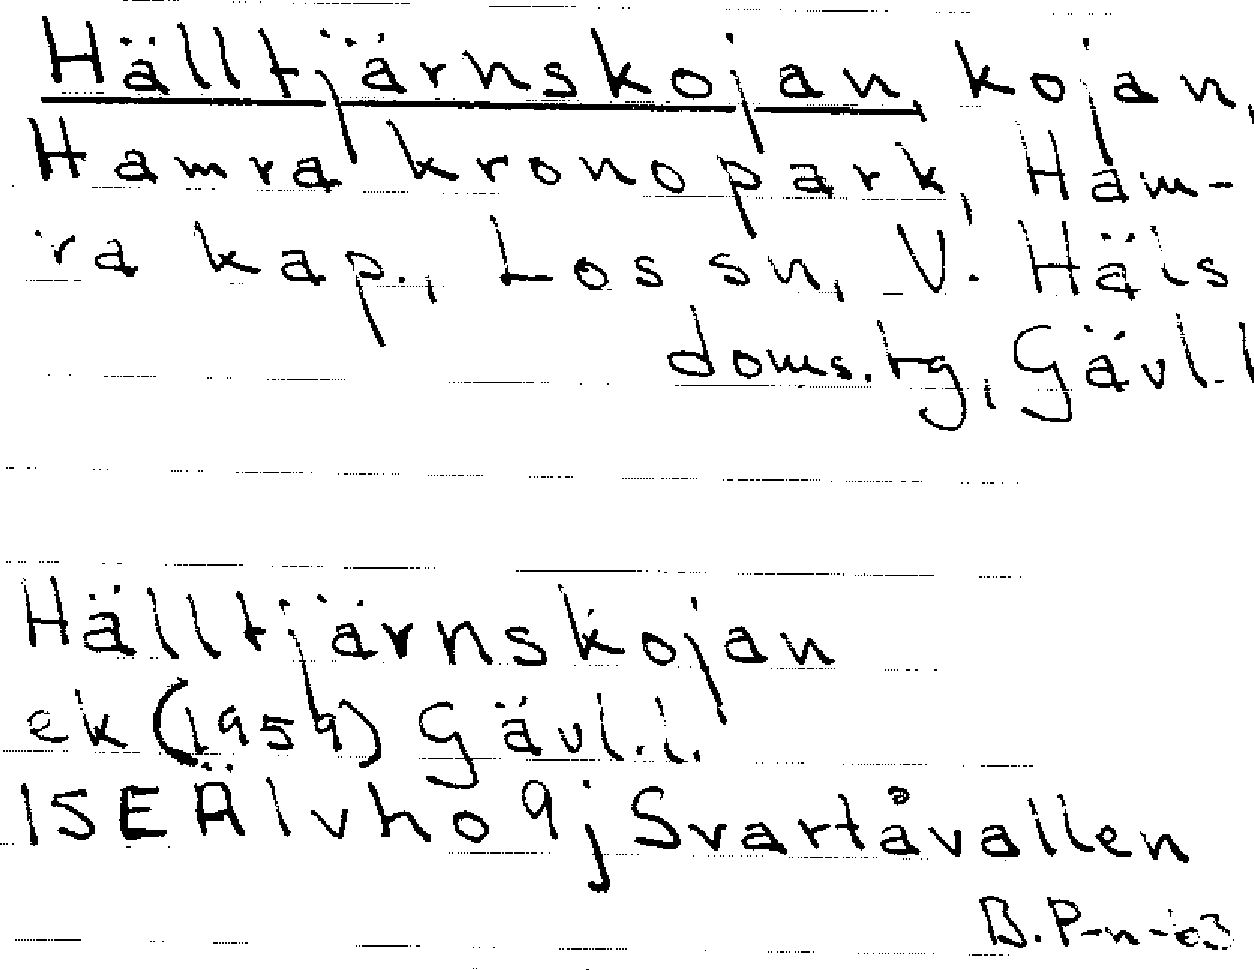 Hälltjärnskojan, kojan,
Hamra kronopark, Ham-
ra kap., Los sn, V. Häls
doms.tg, Gävl.l
Hälltjärnskojan
ek (1959) Gävl.l.
15E Älvho 9j Svartåvallen
B.P-n-63